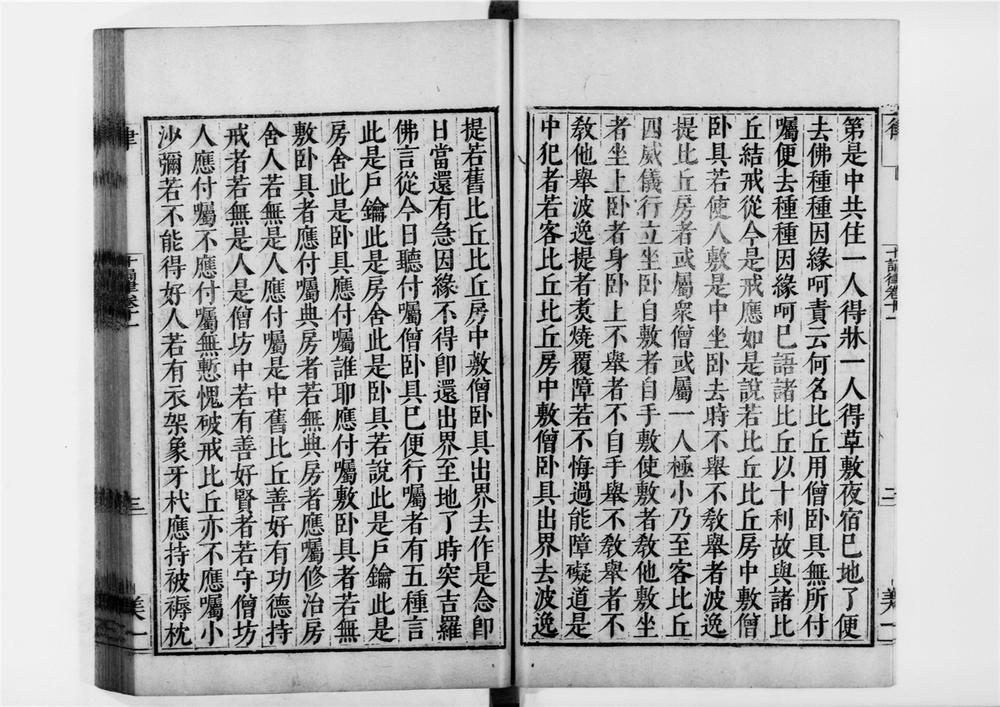 第是中共住一人得牀一人得草敷夜宿巳地了便
去佛種種因緣呵責云何名比丘用僧卧具無所付
囑便去種種因緣呵巳語諸比丘以十利故與諸比
丘結戒從今是戒應如是說若比丘比丘房中敷僧
卧具若使人敷是中坐卧去時不舉不敎舉者波逸
提比丘房者或屬衆僧或屬一人極小乃至客比丘
四威儀行立坐卧自敷者自手敷使敷者敎他敷坐
者坐上卧者身卧上不舉者不自手舉不敎舉者不
敎他舉波逸提者煑燒覆障若不悔過能障礙道是
中犯者若客比丘比丘房中敷僧卧具出界去波逸
提若舊比丘比丘房中敷僧卧具出界去作是念卽
日當還有急因緣不得卽還出界至地了時突吉羅
佛言從今日聽付囑僧卧具巳便行囑者有五種言
此是戶鑰此是房舍此是卧具若說此是戶鑰此是
房舍此是卧具應付囑誰耶應付囑敷卧具者若無
敷卧具者應付囑典房者若無典房者應囑修治房
舍人若無是人應付囑是中舊比丘善好有功德持
戒者若無是人是僧坊中若有善好賢者若守僧坊
人應付囑不應付囑無慙愧破戒比丘亦不應囑小
沙彌若不能得好人若有衣架象牙杙應持被褥枕
十誦律卷十一
三
美一